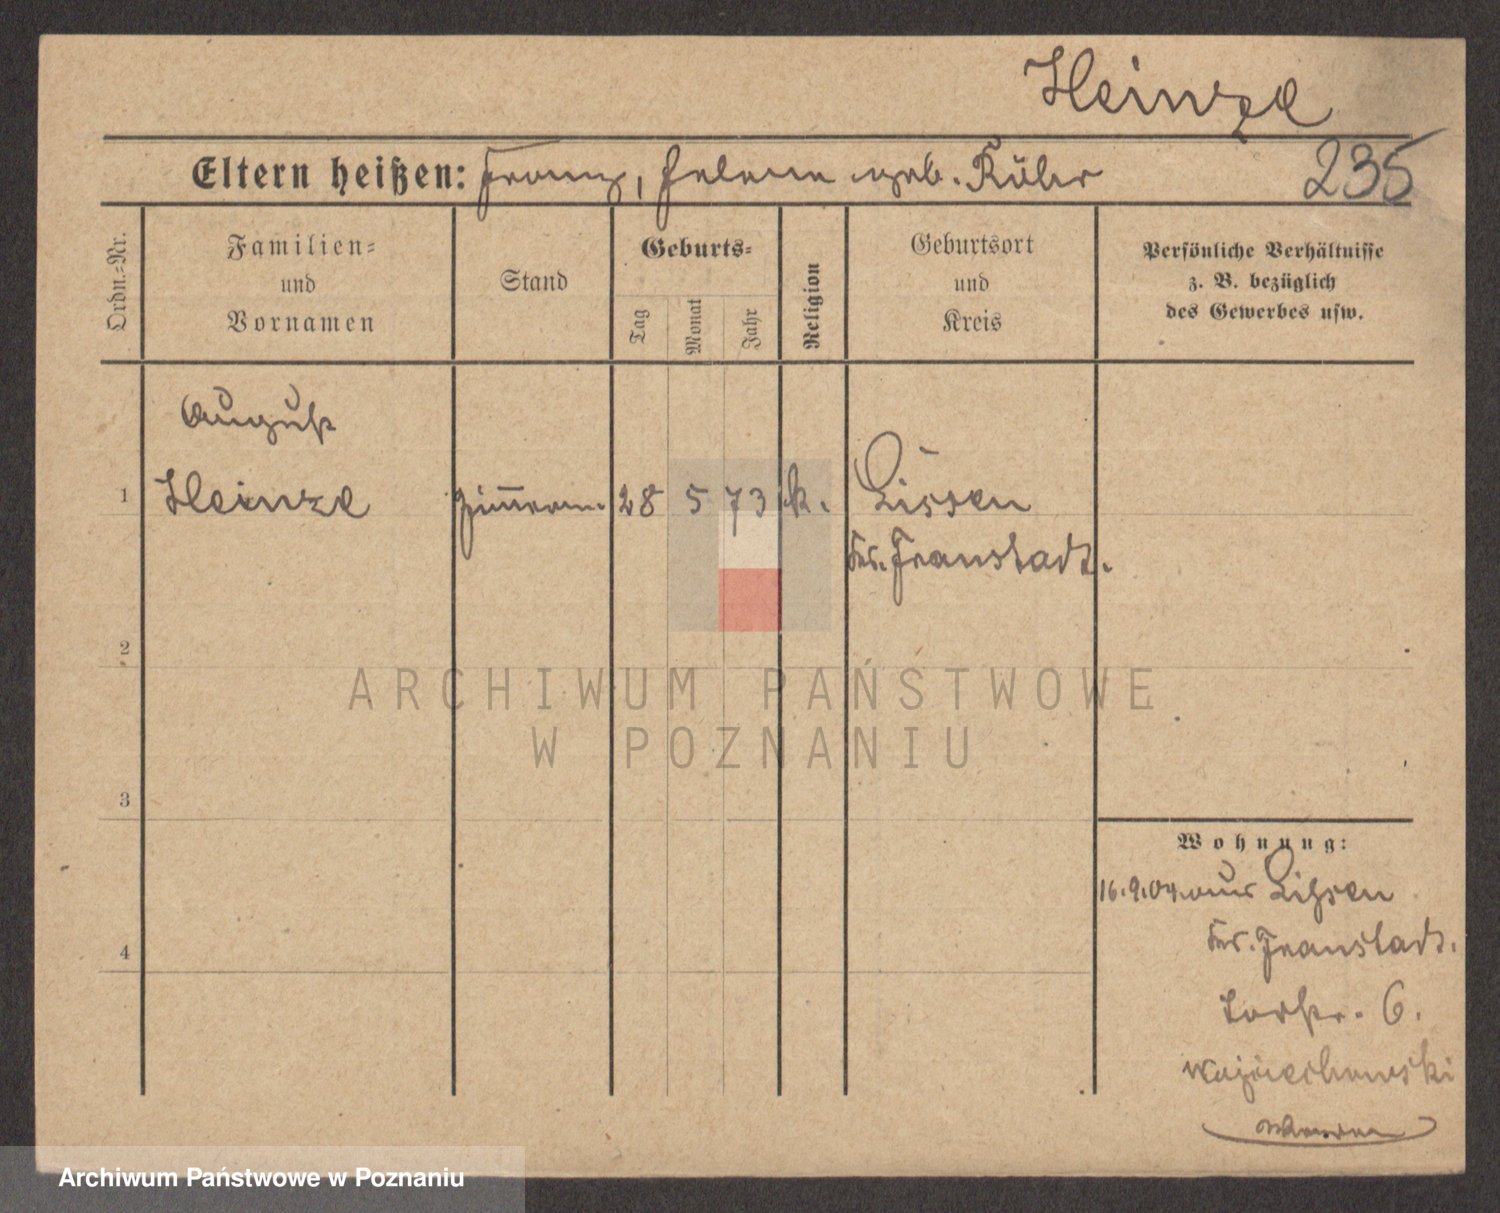 Heinze
Eltern heißen: Franz, Helene geb. Röhr
235
Ordn.-Nr.
Familien-
und
Vornamen
Stand
Geburts-
Tag
Monat
Jahr
Religion
Geburtsort
und
Kreis
Persönliche Verhältnisse
z. B. bezüglich
des Gewerbes usw.
August
1 Heinze Zimmerm. 28 5 73 k. Lissen
Kr. Fraustadt.
2
ARCHIWUM PAŃSTWOWE
W POZNANIU
3
Wohnung:
16.9.04. aus Lissen
4
Kr. Fraustadt.
Torstr. 6.
Wojciechowski
Archiwum Państwowe w Poznaniu